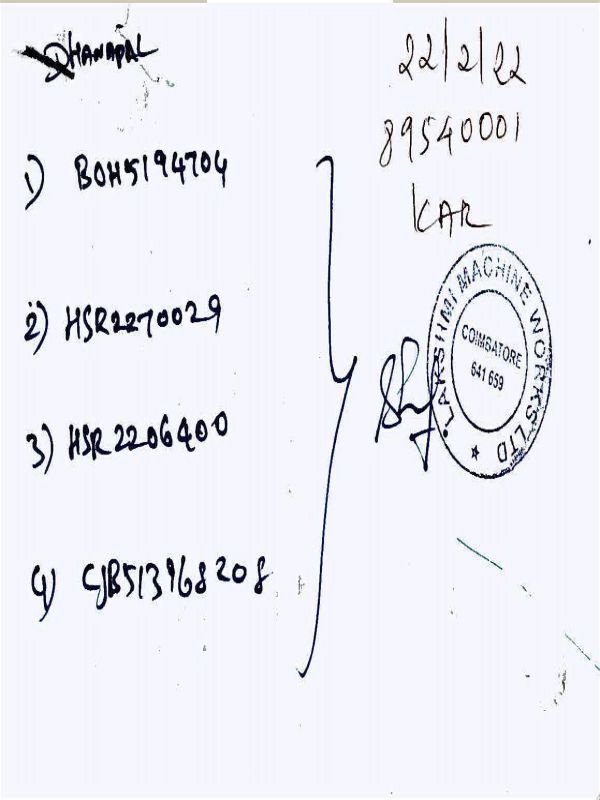 DHANAPAL
22/2/22
89540001
KAR
1) BOM5194704
2) HSR2270029
3) HSR2206400
4) CJB513968208
LAKSHMI MACHINE WORKS LTD
COIMBATORE
641 659